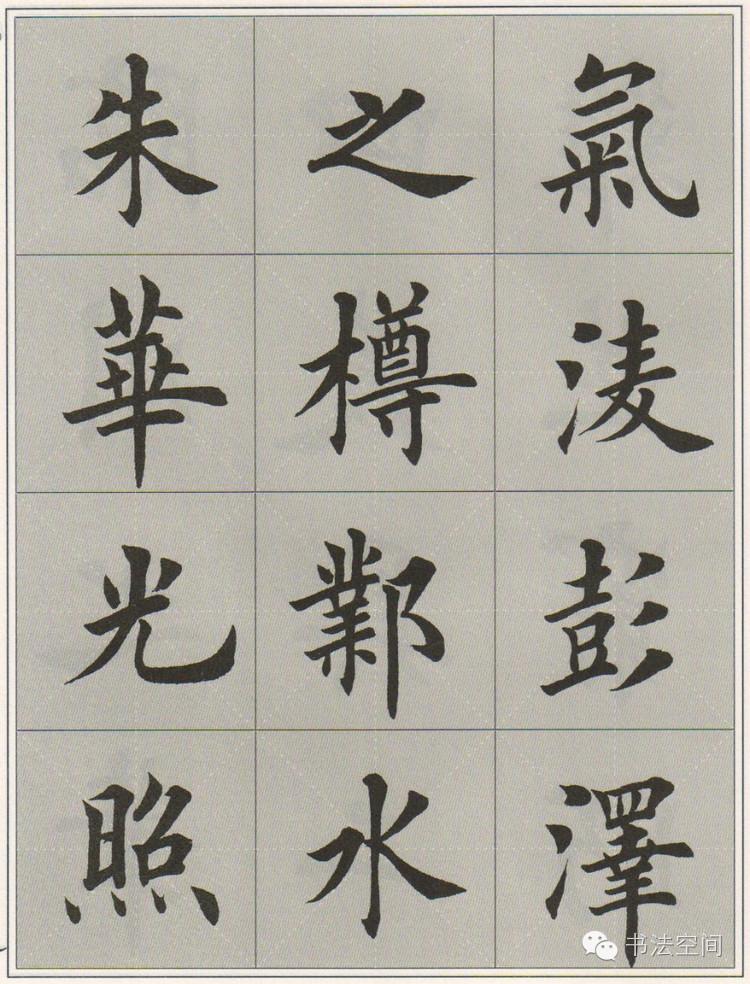 氣淩彭澤
之樽鄴水
朱華光照
书法空间